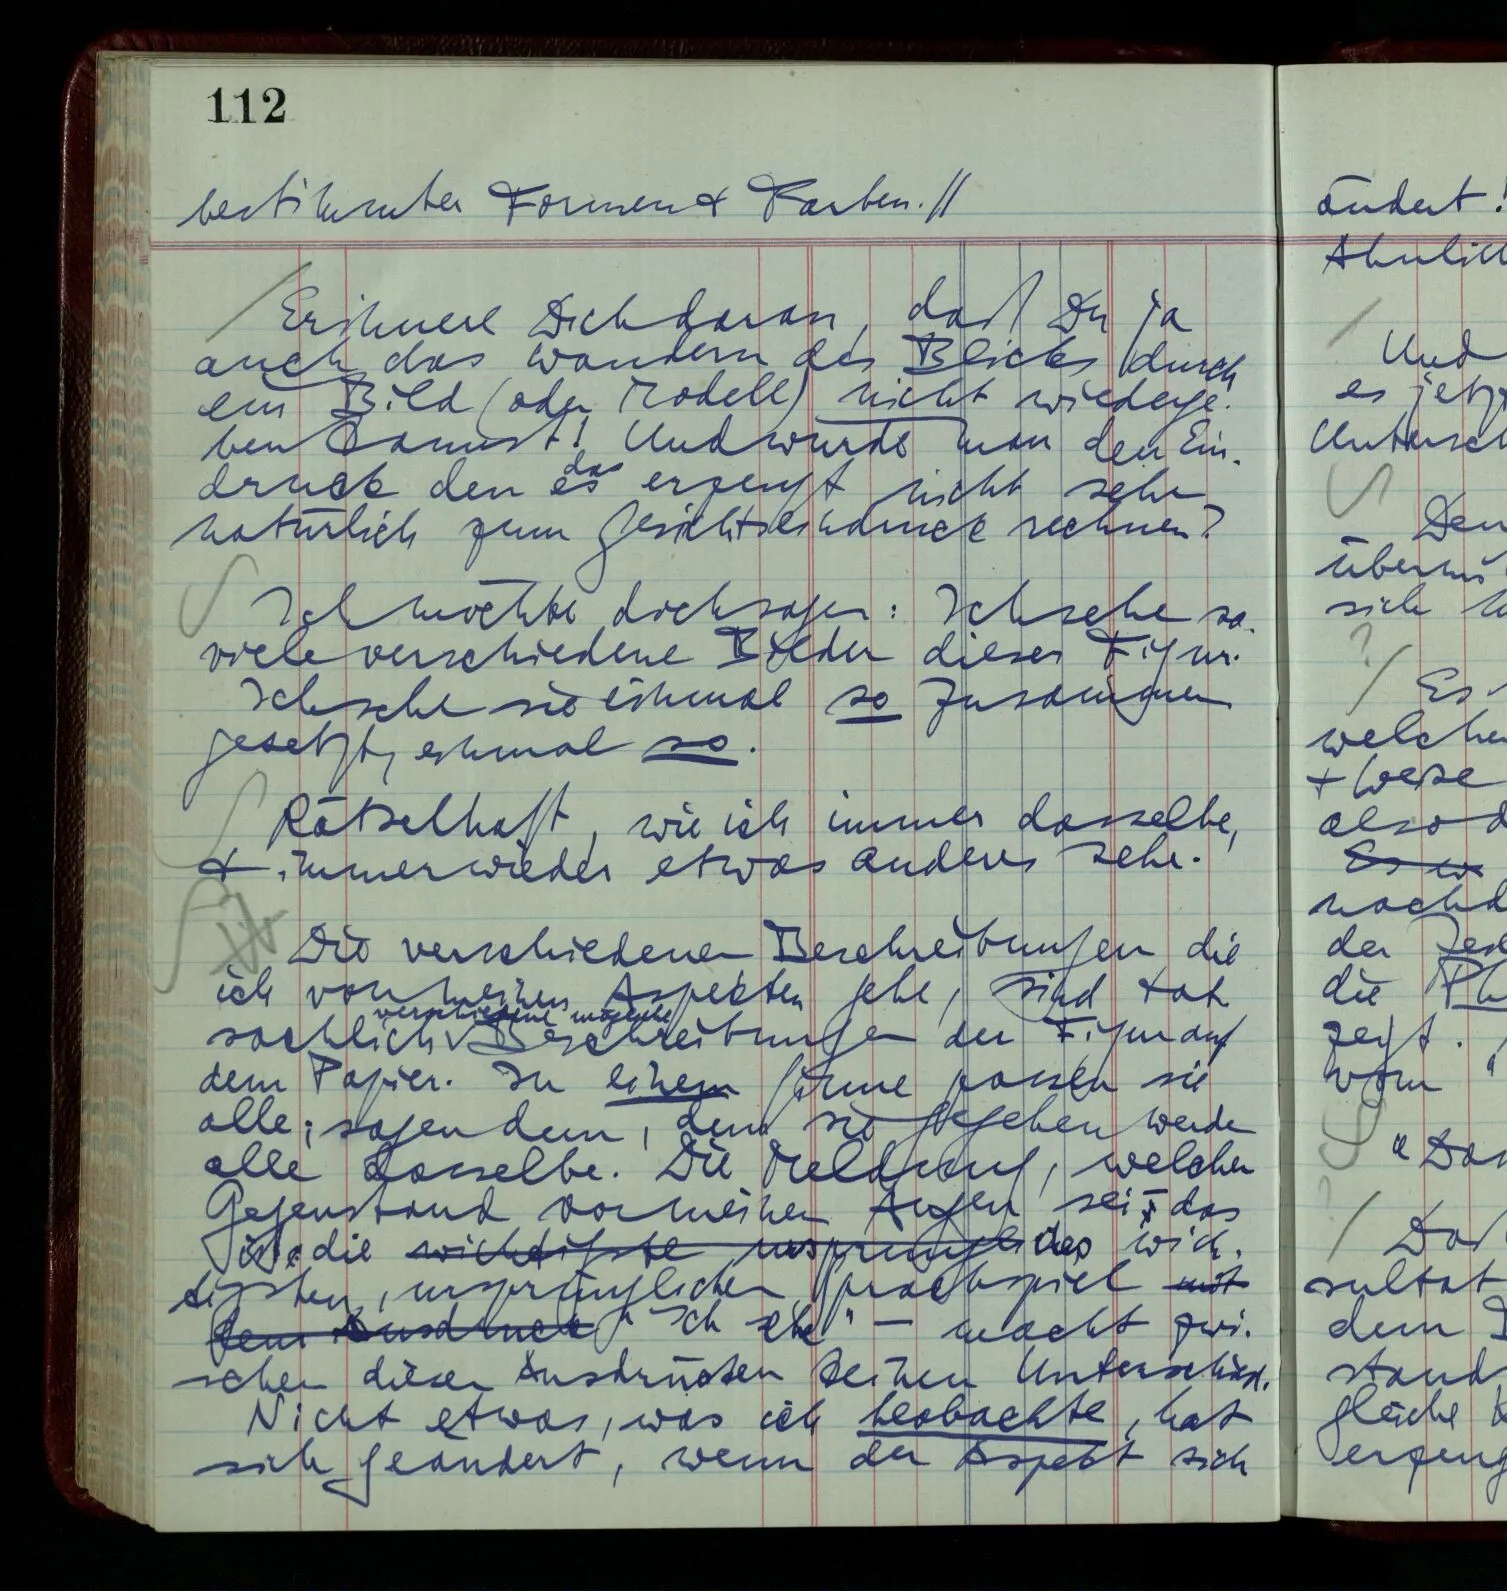 112
bestimmter Formen & Farben.//
Erinnere Dich daran, daß Du ja
auch das wandern des Blicks durch
ein Bild (oder Modell) nicht wiederge-
ben kannst! Und würde man den Ein-
druck den es das erzeugt nicht sehr
natürlich zum Gesichtseindruck rechnen?
Ich möchte doch sagen: Ich sehe so
viele verschiedene Bilder dieser Figur.
Ich sehe sie einmal so zusammen
gesetzt, einmal so.
Rätselhaft, wie ich immer dasselbe,
& immer wieder etwas anderes sehe.
Die verschiedenen Beschreibungen die
ich von meinen Aspekten gebe, sind tat
verschiedene mögliche
sächlich Beschreibungen der Figur auf
dem Papier. In einem Sinne passen sie
alle; sagen dem, dem sie gegeben werden
alle dasselbe. Die Meldung, welcher
Gegenstand vor meinen Augen sei – das
ist die wichtigste ursprüngli des wich-
tigsten, ursprünglichen Sprachspiel mit
dem Ausdruck "Ich sehe" – macht zwi-
schen diesen Ausdrücken keinen Unterschied.
Nicht etwas, was ich beobachte, hat
sich geändert, wenn der Aspekt sich
ändert!
Und
es jetzt
Den
sich
Es
welchen
& Weise
also
der
die
zeigt.
vom "
dem
gleiche